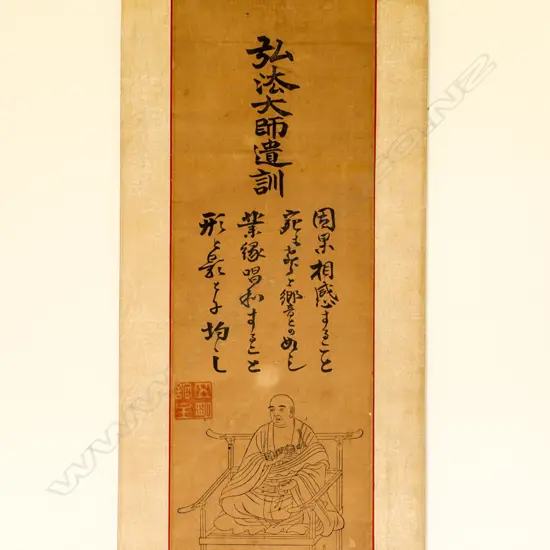 弘法大師遺訓
因果相感すること
宛も声と響との如し
業縁唱和すること
形と影とに均し